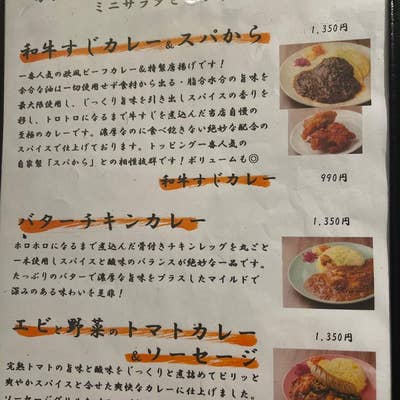 ミニサラダ
和牛すじカレー&スパから
1,350円
一番人気の欧風ビーフカレー&特製唐揚げです!
余分な油は一切使用せず食材から出る・脂分水分の旨味を
最大限使用し、じっくり旨味を引き出しスパイスの香りを
移し、トロトロになるまで牛すじを煮込んだ当店自慢の
至極のカレーです。濃厚なのに食べ飽きない絶妙な配合の
スパイスで仕上げております。トッピング一番人気の
自家製「スパから」との相性抜群です!ボリュームも◎
和牛すじカレー
990円
バターチキンカレー
1,350円
ホロホロになるまで煮込んだ骨付きチキンレッグを丸ごと
一本使用しスパイスと酸味のバランスが絶妙な一品です。
たっぷりのバターで濃厚な旨味をプラスしたマイルドで
深みのある味わいを是非!
エビと野菜のトマトカレー
&ソーセージ
1,350円
完熟トマトの旨味と酸味をじっくりと煮詰めてピリッと
爽やかスパイスと合せた爽快なカレーに仕上げました。